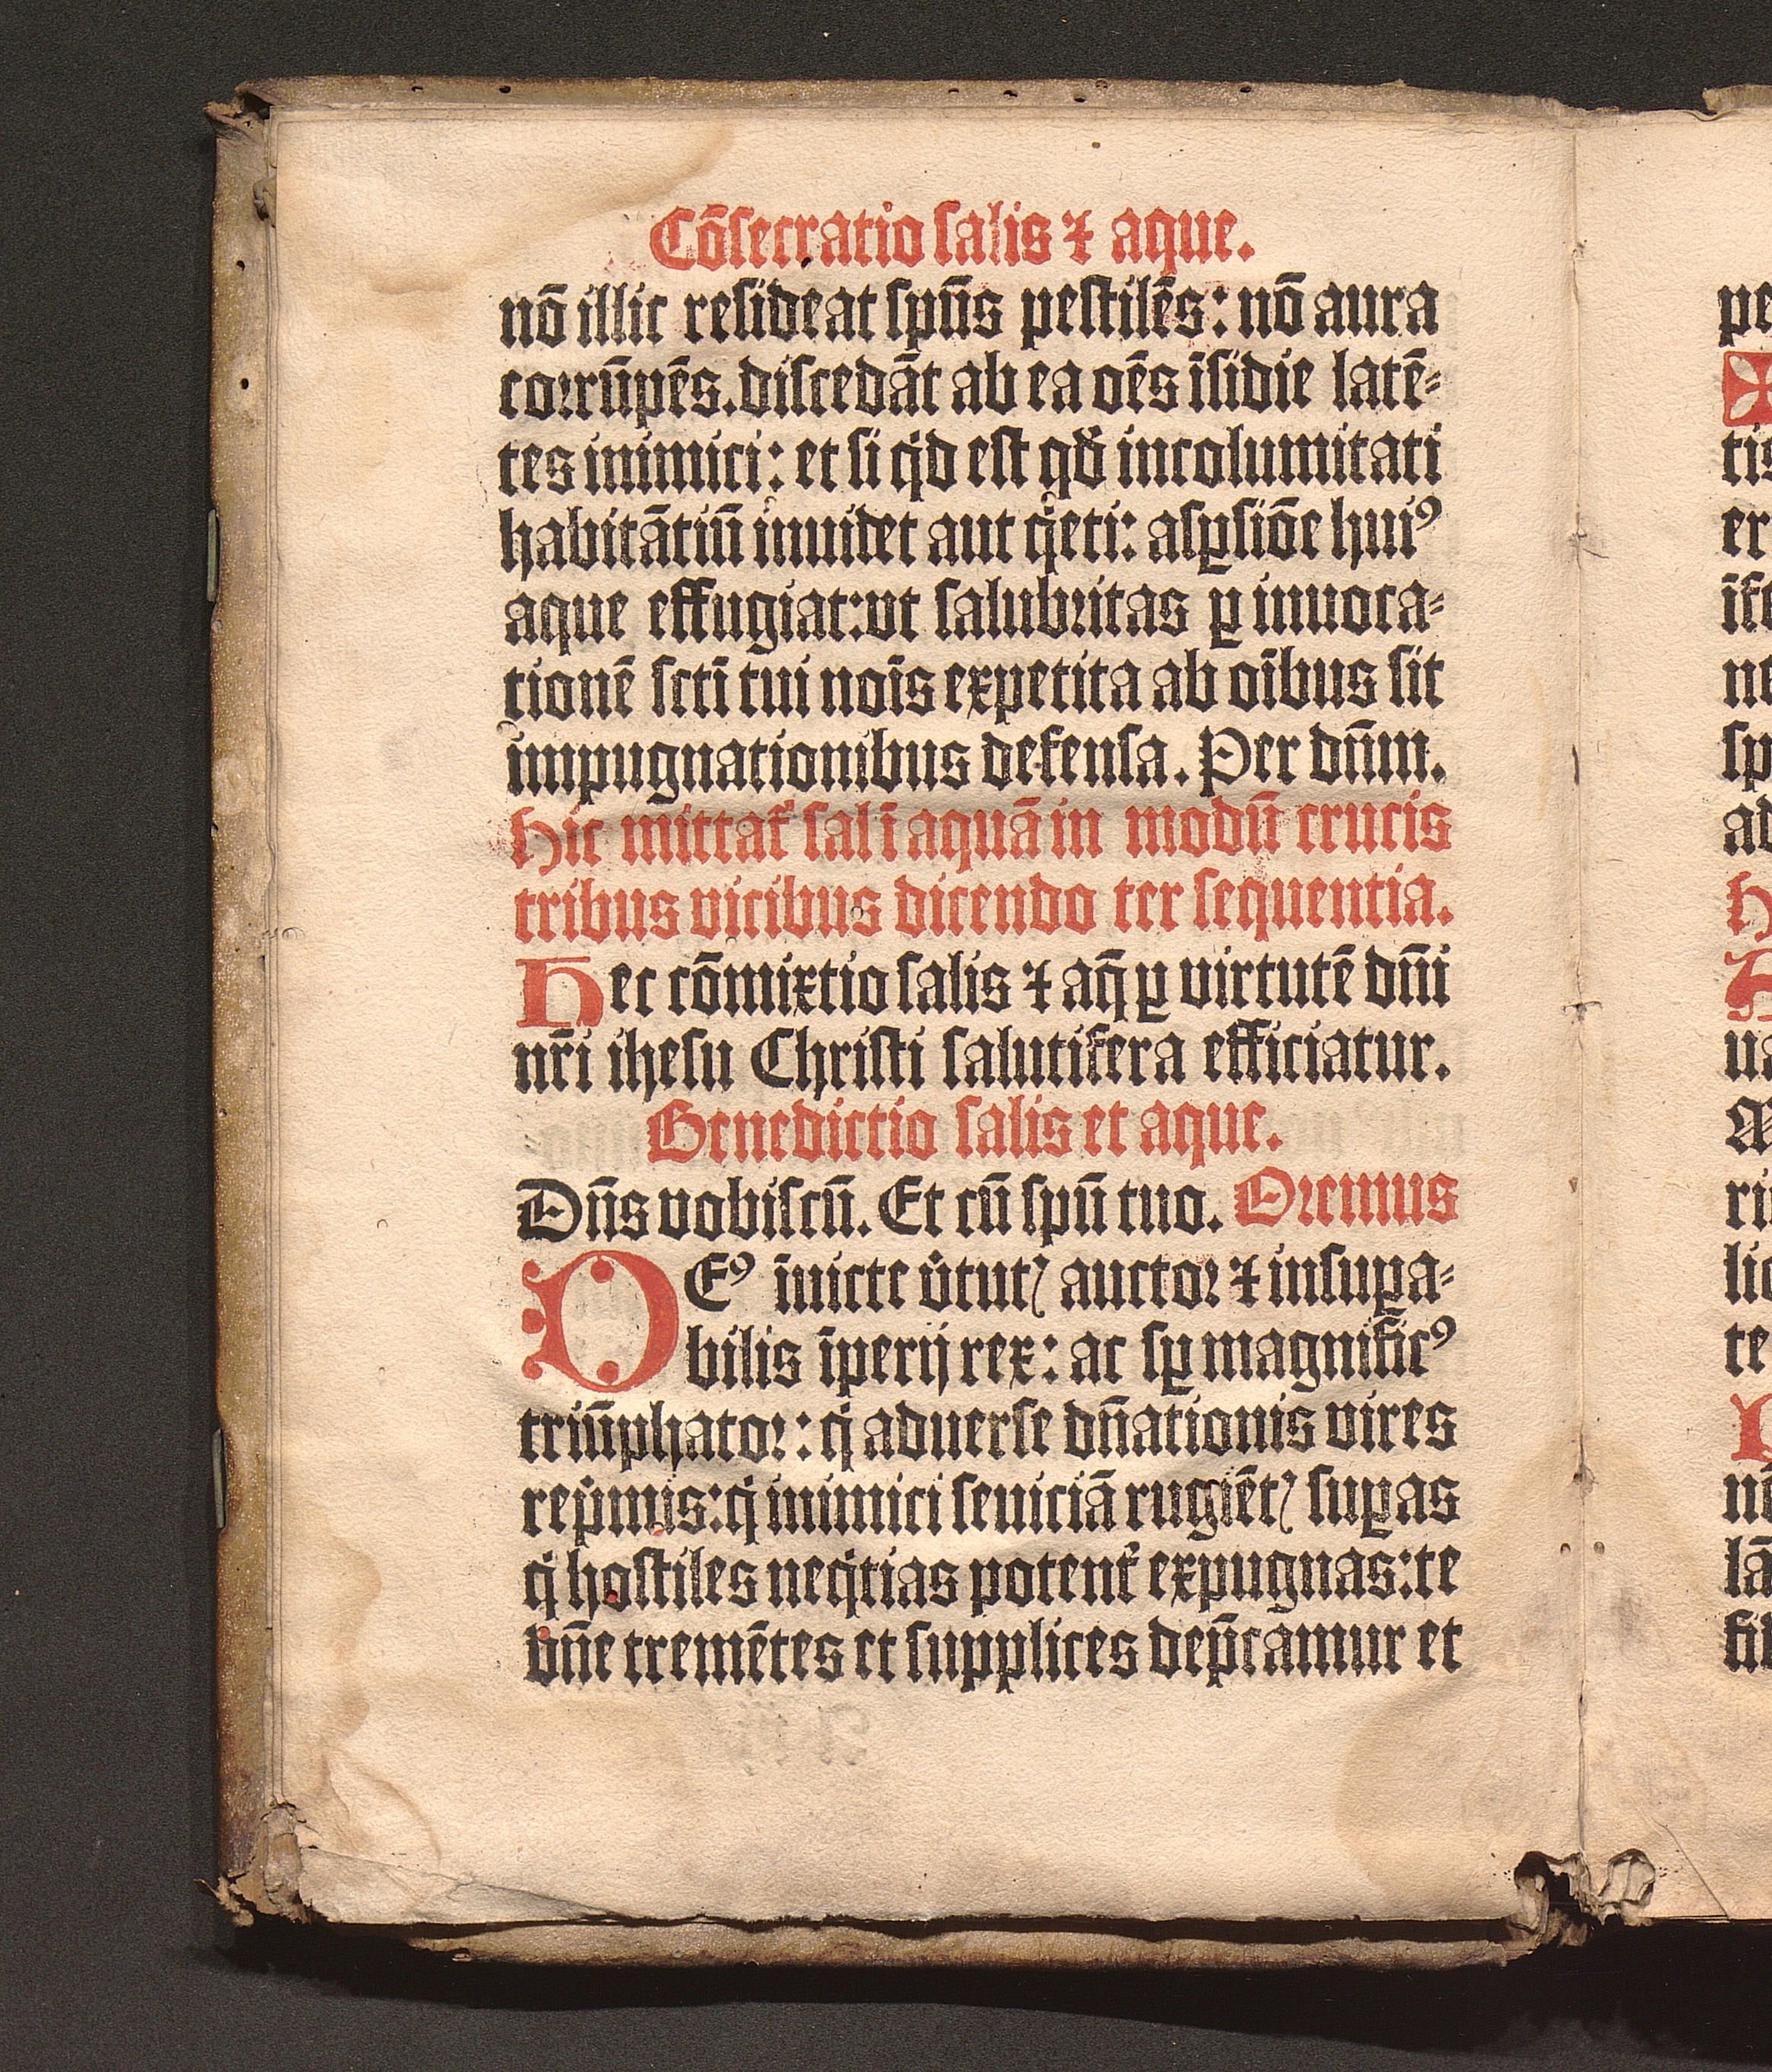 Cōsecratio salis ⁊ aque.
nō illic resideat spūs pestilēs: nō aura
corrūpēs. discedāt ab ea oēs īsidie latē⸗
tes inimici: et si qͥd est qđ incolumitati
habitātiū inuidet aut qͥeti: asꝑsiōe huiꝰ
aque effugiat: vt salubritas ꝑ inuoca⸗
tionē scti tui noīs expetita ab oībus sit
impugnationibus defensa. Per dn̄m.
Hic mittat᷑ sal ī aquā in modū crucis
tribus vicibus dicendo ter sequentia.
Hec cōmixtio salis ⁊ aq̄ ꝑ virtutē dn̄i
nr̄i ihesu Christi salutifera efficiatur.
Benedictio salis et aque.
Dn̄s vobiscū. Et cū spū tuo. Oremus
DEꝰ īuicte v̓tutꝭ auctor ⁊ insuꝑa⸗
bilis īperij rex: ac sꝑ magnificꝰ
triūphator: qͥ aduerse dn̄ationis vires
repͥmis: qͥ inimici seuiciā rugiētꝭ suꝑas
qͥ hostiles neqͥtias potent᷑ expugnas: te
dn̄e tremētes et supplices dep̄camur et
pe
✠
tis
er
ne
sp
ad
H
ua
ri
lic
te
nē
lā